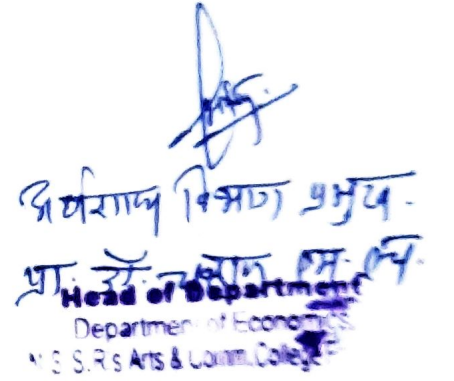 अर्थशास्त्र विभाग प्रमुख.
प्रा. डॉ.
Head of Department
Department of Economics
S.R's Arts & Comm. College